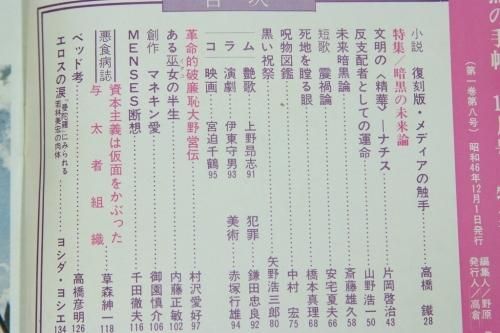 の手帖
(第一巻第八号) 昭和46年12月1日発行
編集人／野原
発行人／高倉
目次
小説 復刻版・メディアの触手 高橋鐵 28
特集／暗黒の未来論
文明の〈精華〉—ナチス 片岡啓治 43
反支配者としての運命 山野浩一 50
未来暗黒論 斎藤雄久 58
短歌 震禍論 安宅夏夫 66
死地を瞠る眼 橋本真理 68
呪物図鑑 中村宏 75
黒い祝祭 矢野浩三郎 80
コラム
艶歌 上野昂志 91 犯罪 鎌田忠良 92
演劇 伊東守男 93 美術 赤塚行雄 94
映画 宮迫千鶴 95
革命的破廉恥大野営伝 村沢愛好 97
ある巫女の半生 内藤正敏 102
創作 マネキン愛 御園慎介 106
MENSES断想 千田徹夫 116
悪食病誌 資本主義は仮面をかぶった
与太者組織 草森紳一 118
ベッド考 高橋彦明 126
エロスの涙 曼陀羅にみられる若林美宏の肉体 ヨシダ・ヨシエ 134